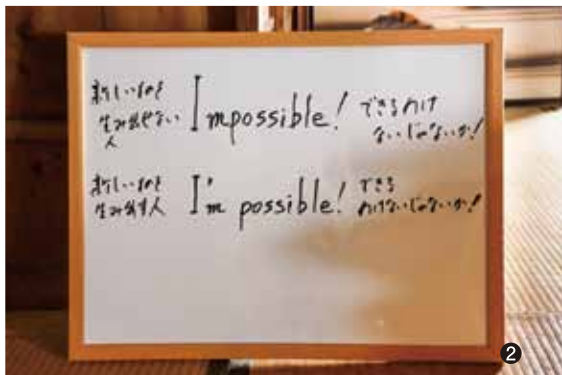 新しいものを
生み出せない
人
Impossible! できるわけ
ないじゃないか!
新しいものを
生み出す人
I'm possible! できる
わけないじゃないか!
❷